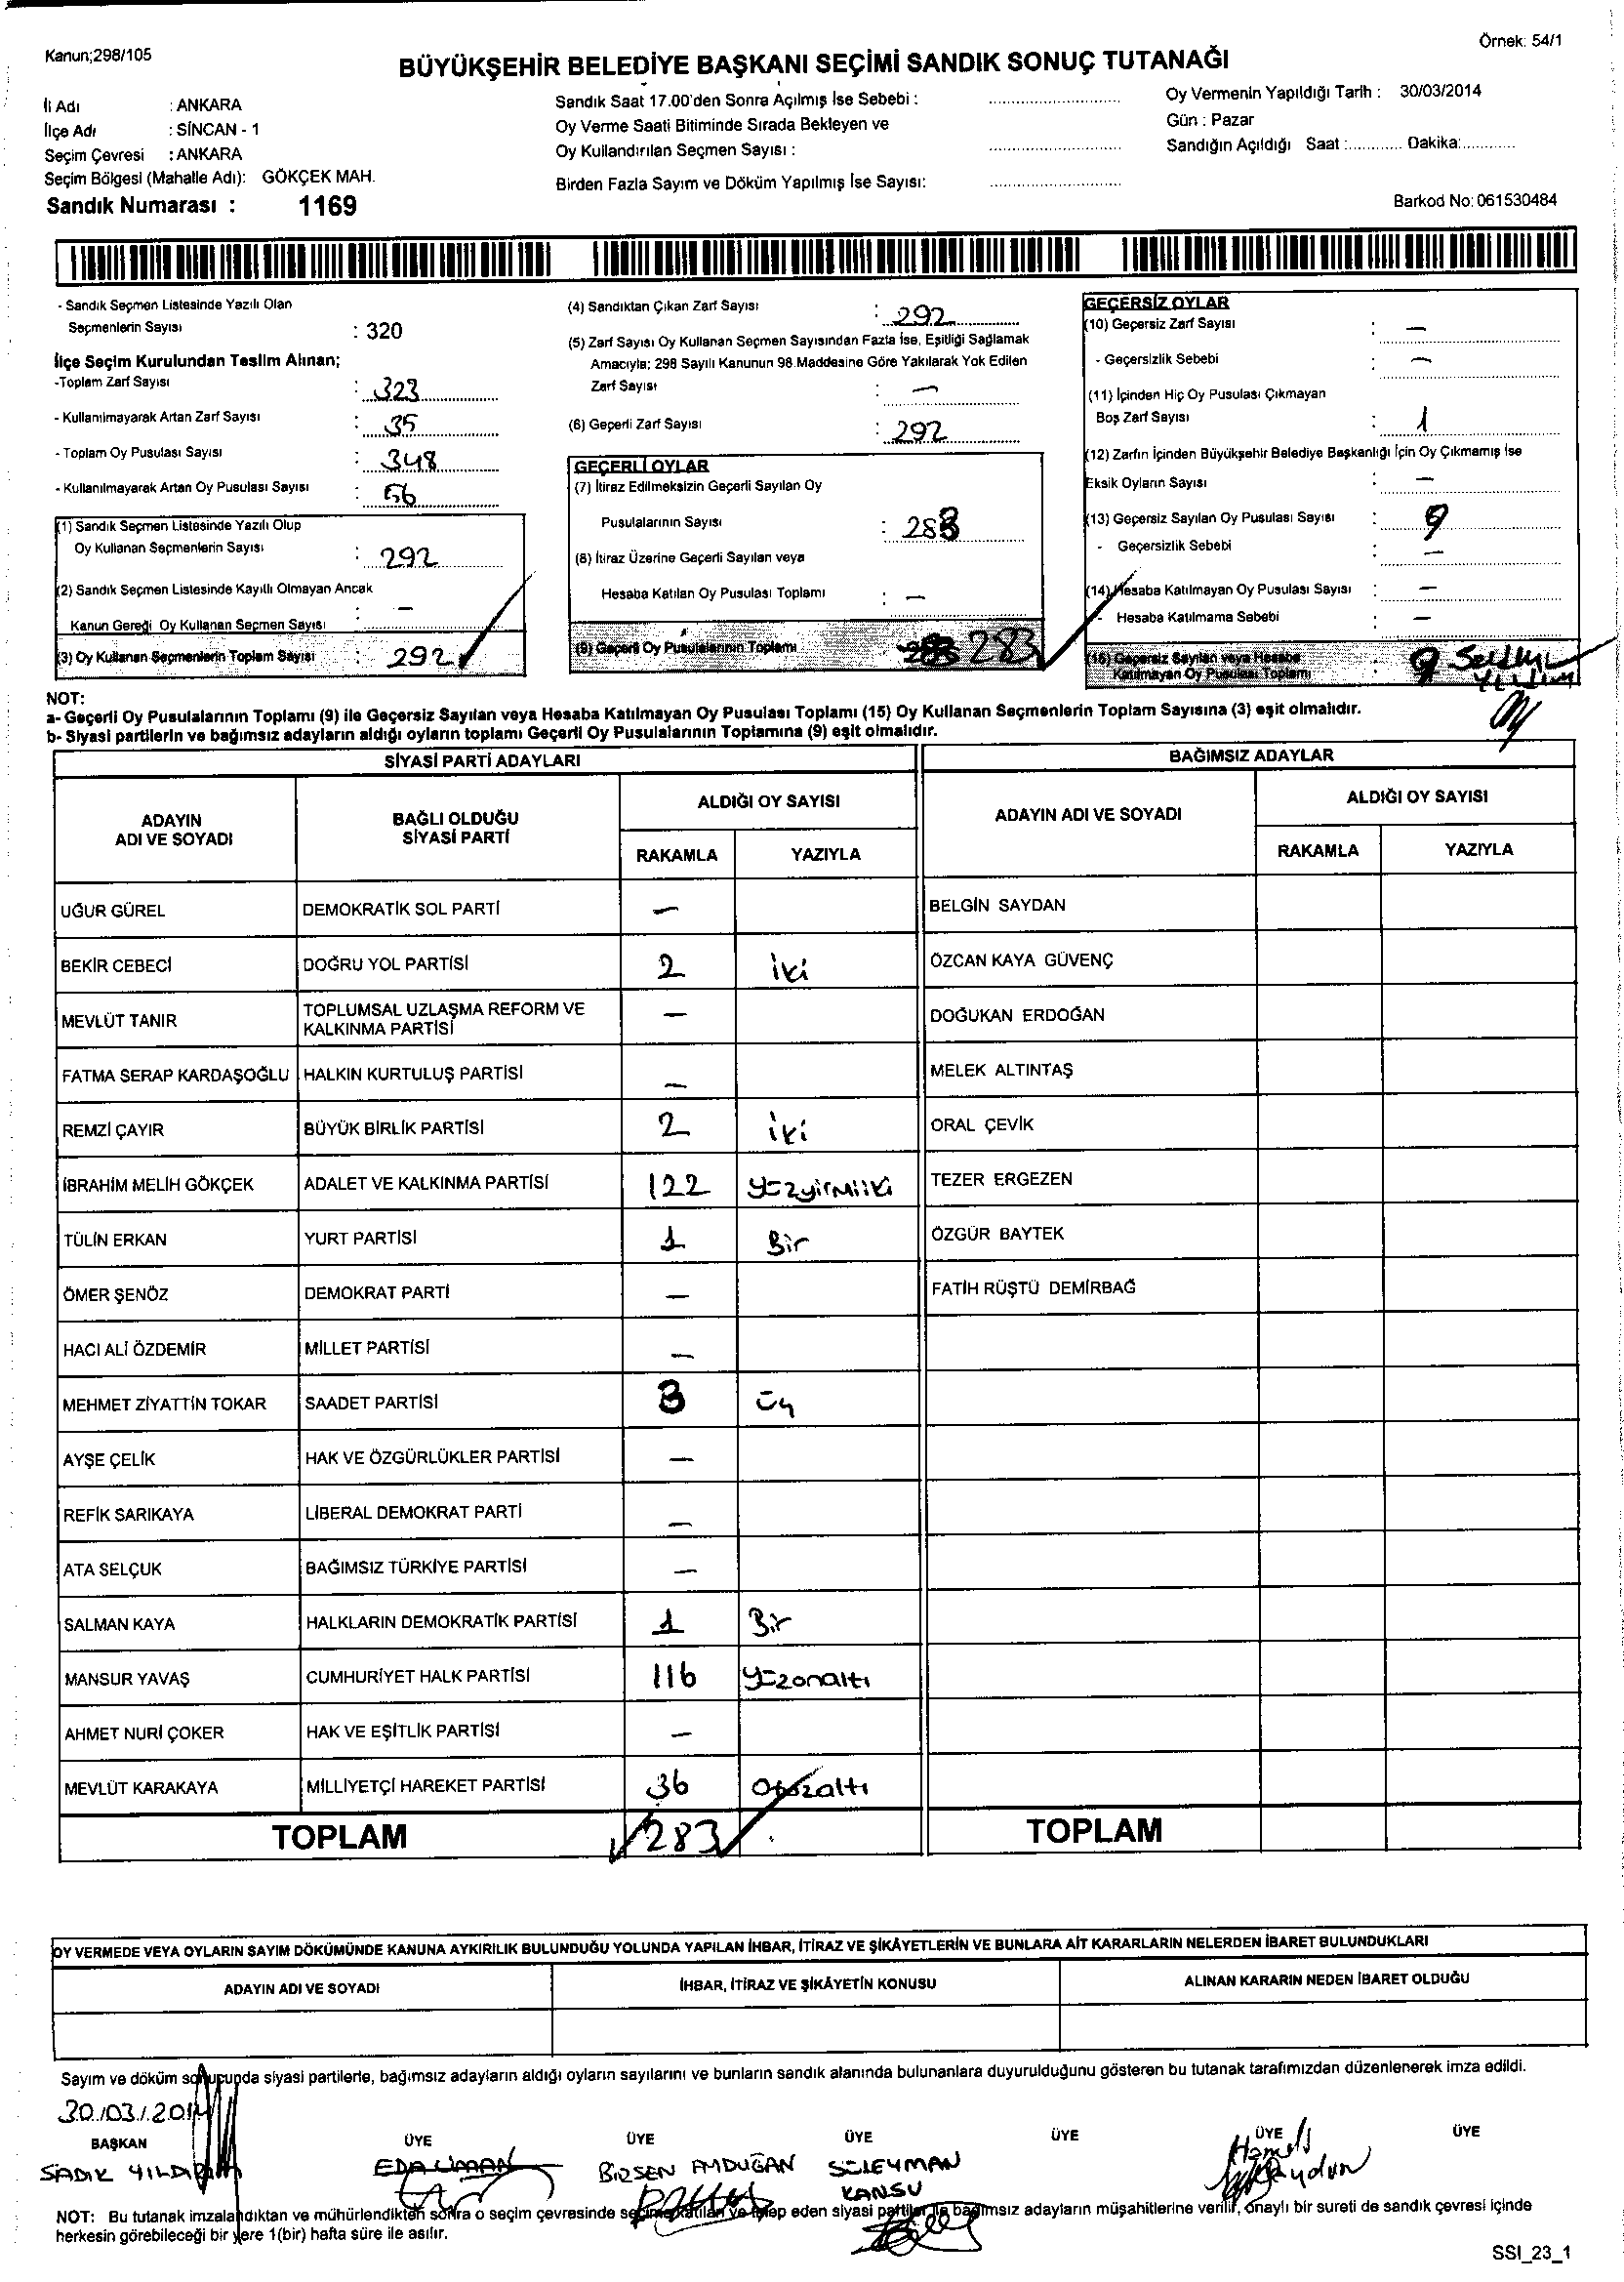 Kanun;298/105
Örnek: 54/1
BÜYÜKŞEHİR BELEDİYE BAŞKANI SEÇİMİ SANDIK SONUÇ TUTANAĞI
İli Adı : ANKARA
İlçe Adı : SİNCAN - 1
Seçim Çevresi : ANKARA
Seçim Bölgesi (Mahalle Adı): GÖKÇEK MAH.
Sandık Numarası : 1169
Sandık Saat 17.00'den Sonra Açılmış İse Sebebi :
Oy Verme Saati Bitiminde Sırada Bekleyen ve
Oy Kullandırılan Seçmen Sayısı :
Birden Fazla Sayım ve Döküm Yapılmış İse Sayısı:
Oy Vermenin Yapıldığı Tarih : 30/03/2014
Gün : Pazar
Sandığın Açıldığı Saat :............ Dakika:............
Barkod No: 061530484
- Sandık Seçmen Listesinde Yazılı Olan
Seçmenlerin Sayısı : 320
İlçe Seçim Kurulundan Teslim Alınan;
-Toplam Zarf Sayısı : 323
- Kullanılmayarak Artan Zarf Sayısı : 35
- Toplam Oy Pusulası Sayısı : 348
- Kullanılmayarak Artan Oy Pusulası Sayısı : 56
(1) Sandık Seçmen Listesinde Yazılı Olup
Oy Kullanan Seçmenlerin Sayısı : 292
(2) Sandık Seçmen Listesinde Kayıtlı Olmayan Ancak
Kanun Gereği Oy Kullanan Seçmen Sayısı : —
(3) Oy Kullanan Seçmenlerin Toplam Sayısı : 292
(4) Sandıktan Çıkan Zarf Sayısı : 292
(5) Zarf Sayısı Oy Kullanan Seçmen Sayısından Fazla İse, Eşitliği Sağlamak
Amacıyla; 298 Sayılı Kanunun 98.Maddesine Göre Yakılarak Yok Edilen
Zarf Sayısı : —
(6) Geçerli Zarf Sayısı : 292
GEÇERLİ OYLAR
(7) İtiraz Edilmeksizin Geçerli Sayılan Oy
Pusulalarının Sayısı : 283
(8) İtiraz Üzerine Geçerli Sayılan veya
Hesaba Katılan Oy Pusulası Toplamı : —
(9) Geçerli Oy Pusulalarının Toplamı 283
GEÇERSİZ OYLAR
(10) Geçersiz Zarf Sayısı : —
- Geçersizlik Sebebi : —
(11) İçinden Hiç Oy Pusulası Çıkmayan
Boş Zarf Sayısı : 1
(12) Zarfın İçinden Büyükşehir Belediye Başkanlığı İçin Oy Çıkmamış İse
Eksik Oyların Sayısı : —
(13) Geçersiz Sayılan Oy Pusulası Sayısı : 9
- Geçersizlik Sebebi : —
(14) Hesaba Katılmayan Oy Pusulası Sayısı : —
- Hesaba Katılmama Sebebi : —
(15) Geçersiz Sayılan veya Hesaba
Katılmayan Oy Pusulası Toplamı : 9
NOT:
a- Geçerli Oy Pusulalarının Toplamı (9) ile Geçersiz Sayılan veya Hesaba Katılmayan Oy Pusulası Toplamı (15) Oy Kullanan Seçmenlerin Toplam Sayısına (3) eşit olmalıdır.
b- Siyasi partilerin ve bağımsız adayların aldığı oyların toplamı Geçerli Oy Pusulalarının Toplamına (9) eşit olmalıdır.
SİYASİ PARTİ ADAYLARI
BAĞIMSIZ ADAYLAR
ADAYIN ADI VE SOYADI
BAĞLI OLDUĞU SİYASİ PARTİ
ALDIĞI OY SAYISI
RAKAMLA YAZIYLA
ADAYIN ADI VE SOYADI
ALDIĞI OY SAYISI
RAKAMLA YAZIYLA
UĞUR GÜREL DEMOKRATİK SOL PARTİ — BELGİN SAYDAN
BEKİR CEBECİ DOĞRU YOL PARTİSİ 2 iki ÖZCAN KAYA GÜVENÇ
MEVLÜT TANIR TOPLUMSAL UZLAŞMA REFORM VE KALKINMA PARTİSİ — DOĞUKAN ERDOĞAN
FATMA SERAP KARDAŞOĞLU HALKIN KURTULUŞ PARTİSİ — MELEK ALTINTAŞ
REMZİ ÇAYIR BÜYÜK BİRLİK PARTİSİ 2 iki ORAL ÇEVİK
İBRAHİM MELİH GÖKÇEK ADALET VE KALKINMA PARTİSİ 122 yüzyirmiiki TEZER ERGEZEN
TÜLİN ERKAN YURT PARTİSİ 1 Bir ÖZGÜR BAYTEK
ÖMER ŞENÖZ DEMOKRAT PARTİ — FATİH RÜŞTÜ DEMİRBAĞ
HACI ALİ ÖZDEMİR MİLLET PARTİSİ —
MEHMET ZİYATTİN TOKAR SAADET PARTİSİ 3 üç
AYŞE ÇELİK HAK VE ÖZGÜRLÜKLER PARTİSİ —
REFİK SARIKAYA LİBERAL DEMOKRAT PARTİ —
ATA SELÇUK BAĞIMSIZ TÜRKİYE PARTİSİ —
SALMAN KAYA HALKLARIN DEMOKRATİK PARTİSİ 1 Bir
MANSUR YAVAŞ CUMHURİYET HALK PARTİSİ 116 yüzonaltı
AHMET NURİ ÇOKER HAK VE EŞİTLİK PARTİSİ —
MEVLÜT KARAKAYA MİLLİYETÇİ HAREKET PARTİSİ 36 Otuzaltı
TOPLAM 283 TOPLAM
OY VERMEDE VEYA OYLARIN SAYIM DÖKÜMÜNDE KANUNA AYKIRILIK BULUNDUĞU YOLUNDA YAPILAN İHBAR, İTİRAZ VE ŞİKÂYETLERİN VE BUNLARA AİT KARARLARIN NELERDEN İBARET BULUNDUKLARI
ADAYIN ADI VE SOYADI İHBAR, İTİRAZ VE ŞİKÂYETİN KONUSU ALINAN KARARIN NEDEN İBARET OLDUĞU
Sayım ve döküm sonucunda siyasi partilerle, bağımsız adayların aldığı oyların sayılarını ve bunların sandık alanında bulunanlara duyurulduğunu gösteren bu tutanak tarafımızdan düzenlenerek imza edildi.
30/03/2014
BAŞKAN ÜYE ÜYE ÜYE ÜYE ÜYE ÜYE
SADIK YILDIRIM EDA LİMAN BİRSEN AYDUĞAN SÜLEYMAN
KANSU
NOT: Bu tutanak imzalandıktan ve mühürlendikten sonra o seçim çevresinde seçime katılan ve talep eden siyasi partiler ile bağımsız adayların müşahitlerine verilir, onaylı bir sureti de sandık çevresi içinde
herkesin görebileceği bir yere 1(bir) hafta süre ile asılır.
SSI_23_1